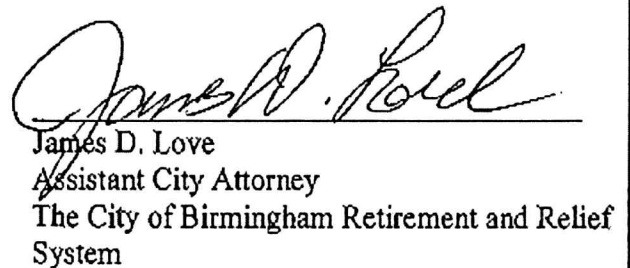 James D. Love
James D. Love
Assistant City Attorney
The City of Birmingham Retirement and Relief
System